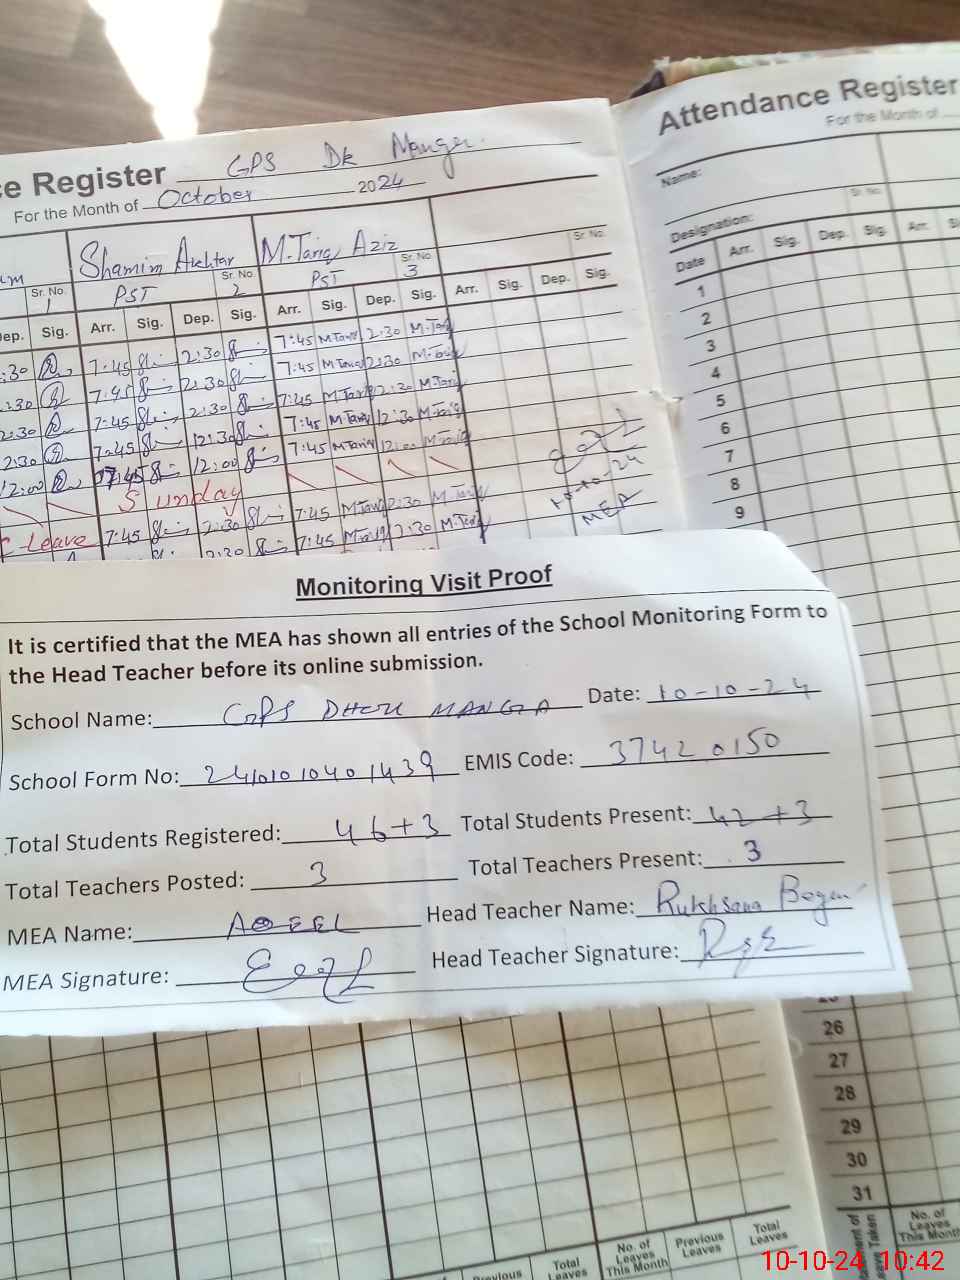 ce Register GPS Dk Manger.
For the Month of October 2024
Shamim Akhtar M. Tariq Aziz
Sr. No. 1 PST Sr. No. 2 PST Sr. No. 3 Sr. No.
Dep. Sig. Arr. Sig. Dep. Sig. Arr. Sig. Dep. Sig. Arr. Sig. Dep. Sig.
:30 7:45 2:30 7:45 M Tariq 2:30 M.Tariq
2:30 7:45 2:30 7:45 M Tariq 2:30 M.Tariq
2:30 7:45 2:30 7:45 M.Tariq 2:30 M.Tariq
2:30 7:45 12:30 7:45 M.Tariq 12:30 M.Tariq
12:00 07:45 12:00 7:45 M Tariq 12:00 M.Tariq
Sunday
C Leave 7:45 2:30 7:45 M.Tariq 2:30 M.Tariq
2:30 7:45 M.Tariq 2:30 M.Tariq
10-10-24
MEA
Attendance Register
For the Month of
Name:
Sr. No.
Designation:
Date Arr. Sig. Dep. Sig. Arr.
1
2
3
4
5
6
7
8
9
Monitoring Visit Proof
It is certified that the MEA has shown all entries of the School Monitoring Form to
the Head Teacher before its online submission.
School Name: GPS DHOK MANGRA Date: 10-10-24
School Form No: 24101010401439 EMIS Code: 37420150
Total Students Registered: 46+3 Total Students Present: 42+3
Total Teachers Posted: 3 Total Teachers Present: 3
MEA Name: AQEEL Head Teacher Name: Rukhsana Begum
MEA Signature: Head Teacher Signature:
26
27
28
29
30
31
Previous Total Leaves No. of Leaves This Month Previous Leaves Total Leaves
No. of Leaves This Month
10-10-24 10:42